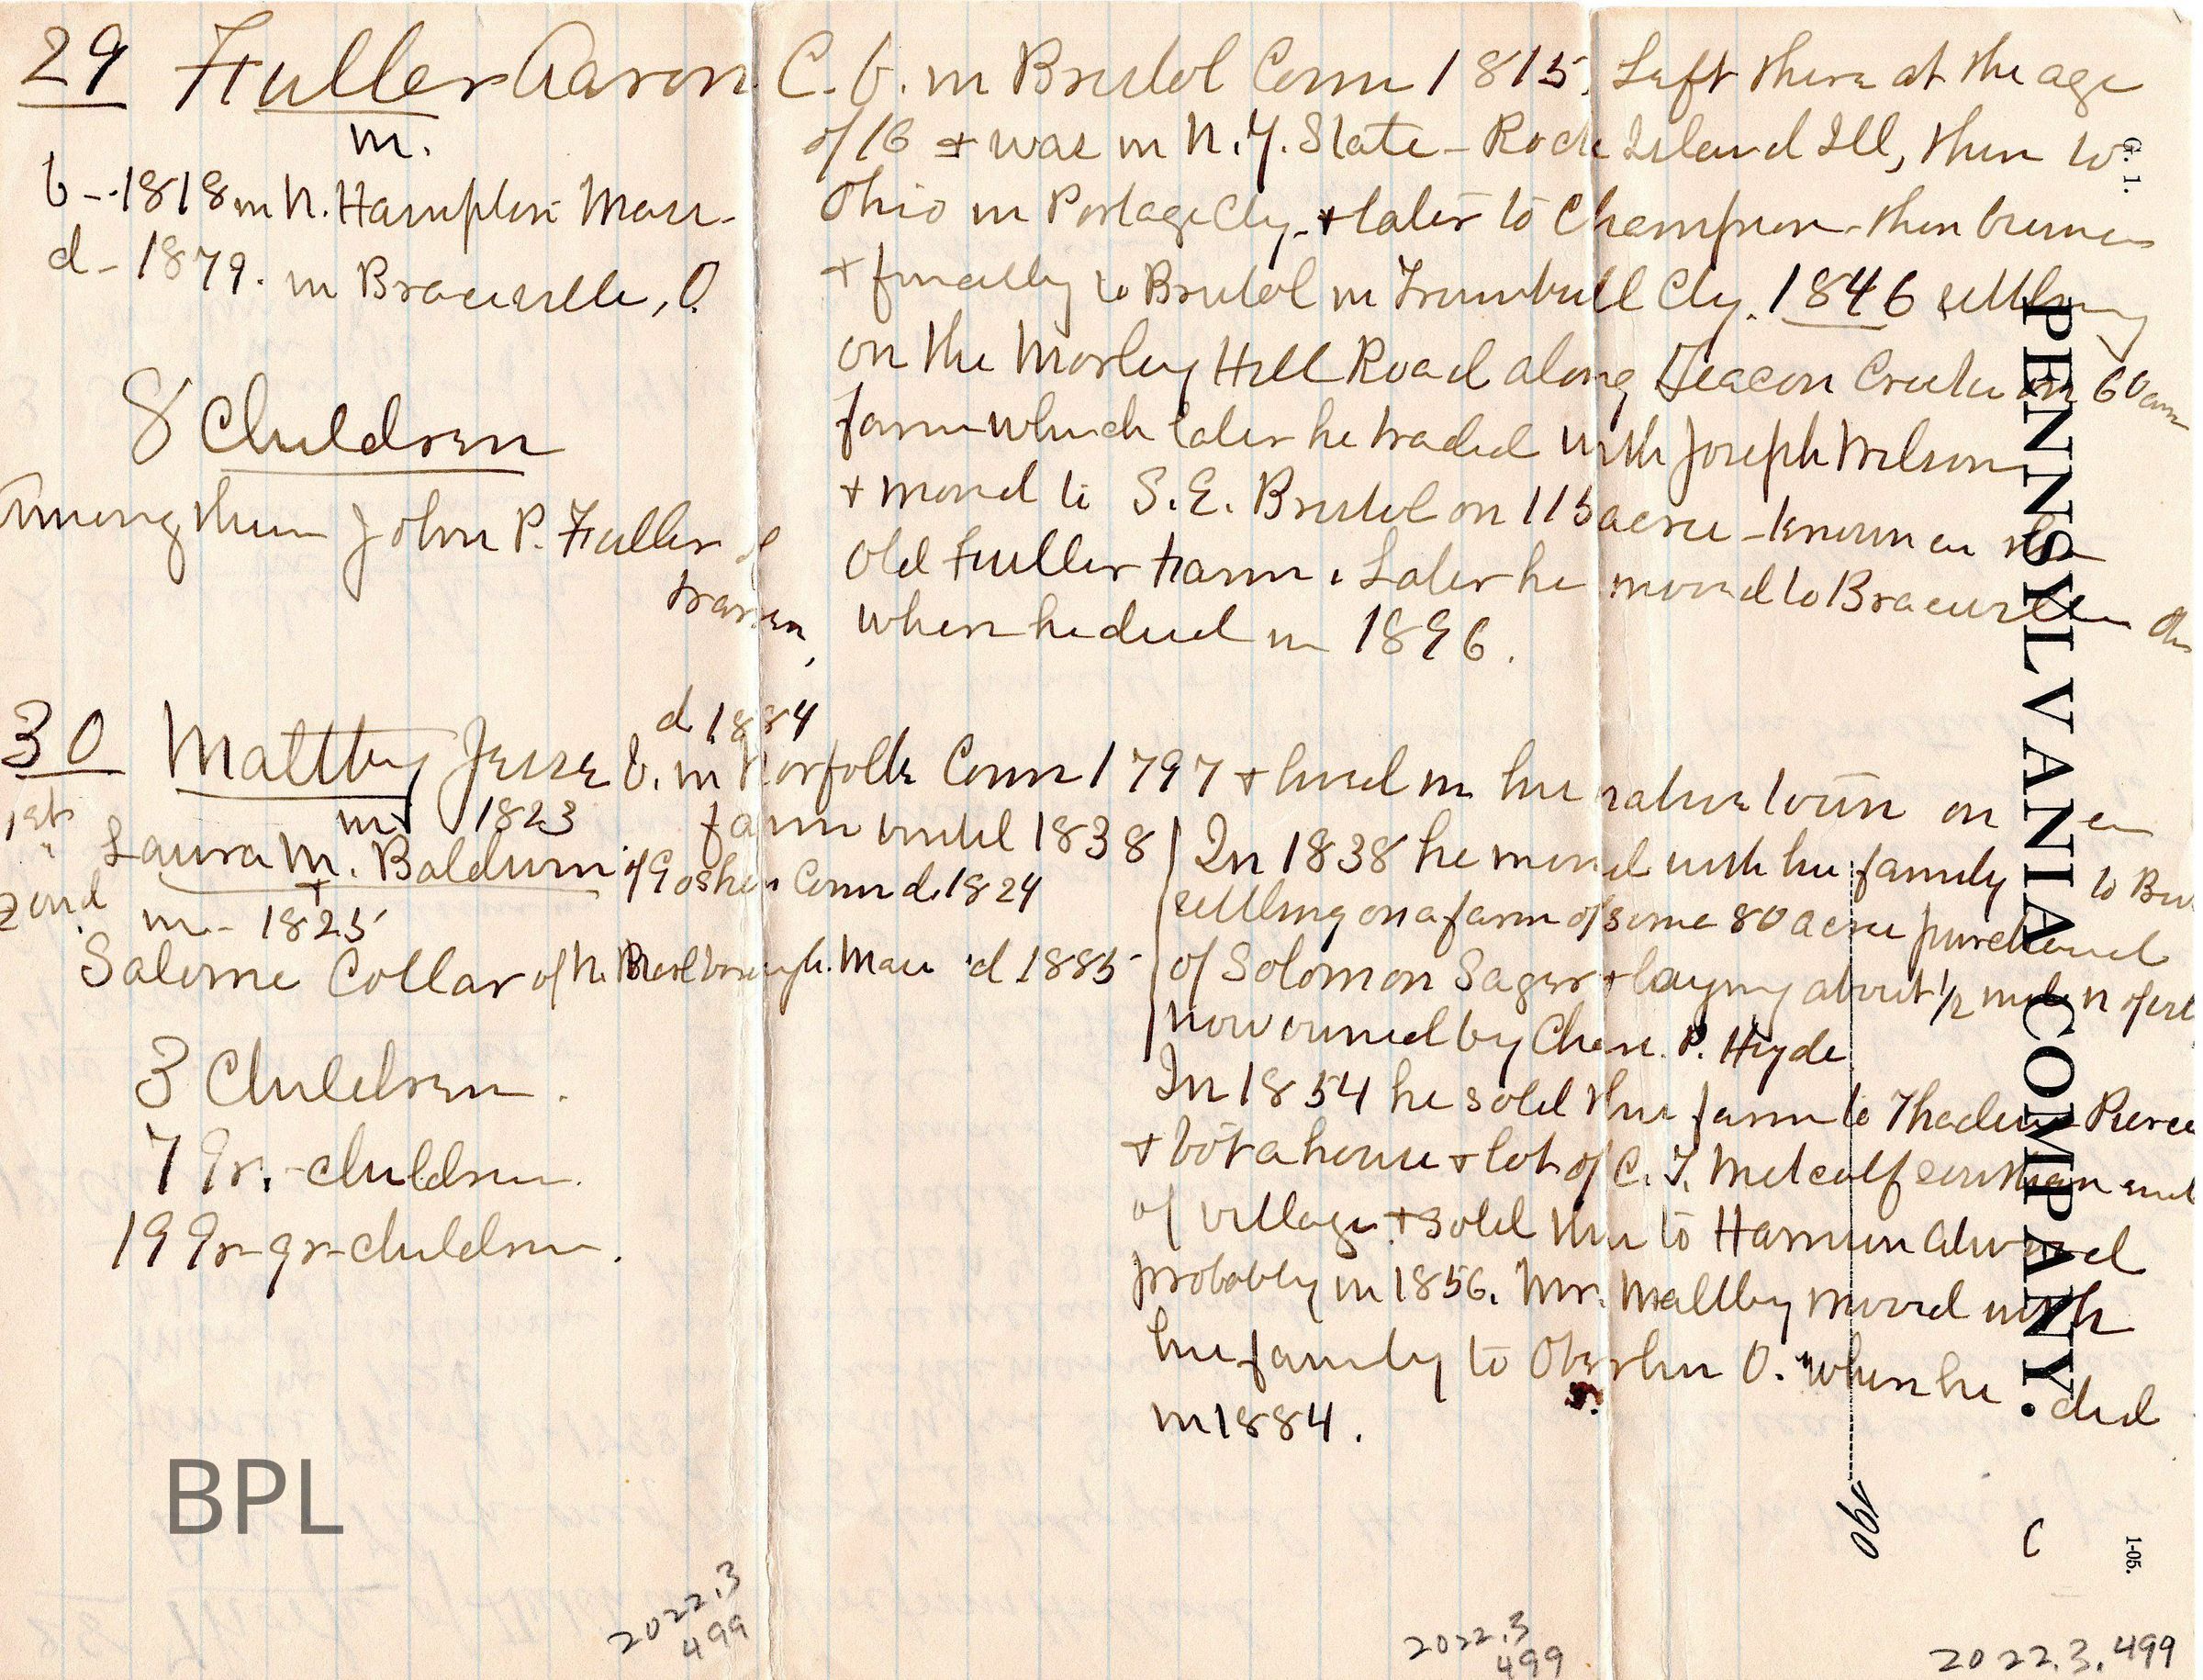 29 Fuller Aaron C. b. in Bristol Conn 1815. Left there at the age
m.
of 16 + was in N.Y. State - Rock Island Ill, then to
b - 1818 in N. Hampton Mass -
Ohio in Portage Cty. + later to Champion - then
d - 1879. in Braceville, O.
+ finally to Bristol in Trumbull Cty. 1846 settling
on the Morley Hill Road along Deacon on 60
8 Children
farm which later he traded with Joseph Wilson
Among them John P. Fuller of
+ moved to S.E. Bristol on 115 acres - known as the
Warren,
Old Fuller Farm. Later he moved to Braceville
where he died in 1896.
d. 1884
30 Maltby Jesse b. in Norfolk Conn 1797 + lived in his native town on a
m. 1823
farm until 1838
1st
Laura M. Baldwin of Goshen Conn d. 1824
2ond
m - 1825
Salome Collar of N. Marlborough. Mass d 1885
In 1838 he moved with his family to
settling on a farm of some 80 acres purchased
of Solomon Sager + laying about 1/2 mile n of
now owned by Chas. P. Hyde
3 Children.
7 Gr. - children.
19 Gr - gr - children.
In 1854 he sold this farm to Thadeus Pierce
+ bot a house + lot of C. T. Metcalf
of village + sold this to Harmon Atwood
probably in 1856. Mr. Maltby moved with
his family to Oberlin O. where he died
in 1884.
G. 1.
PENNSYLVANIA COMPANY.
190
C
1-05.
BPL
2022.3
499
2022.3
499
2022.3.499